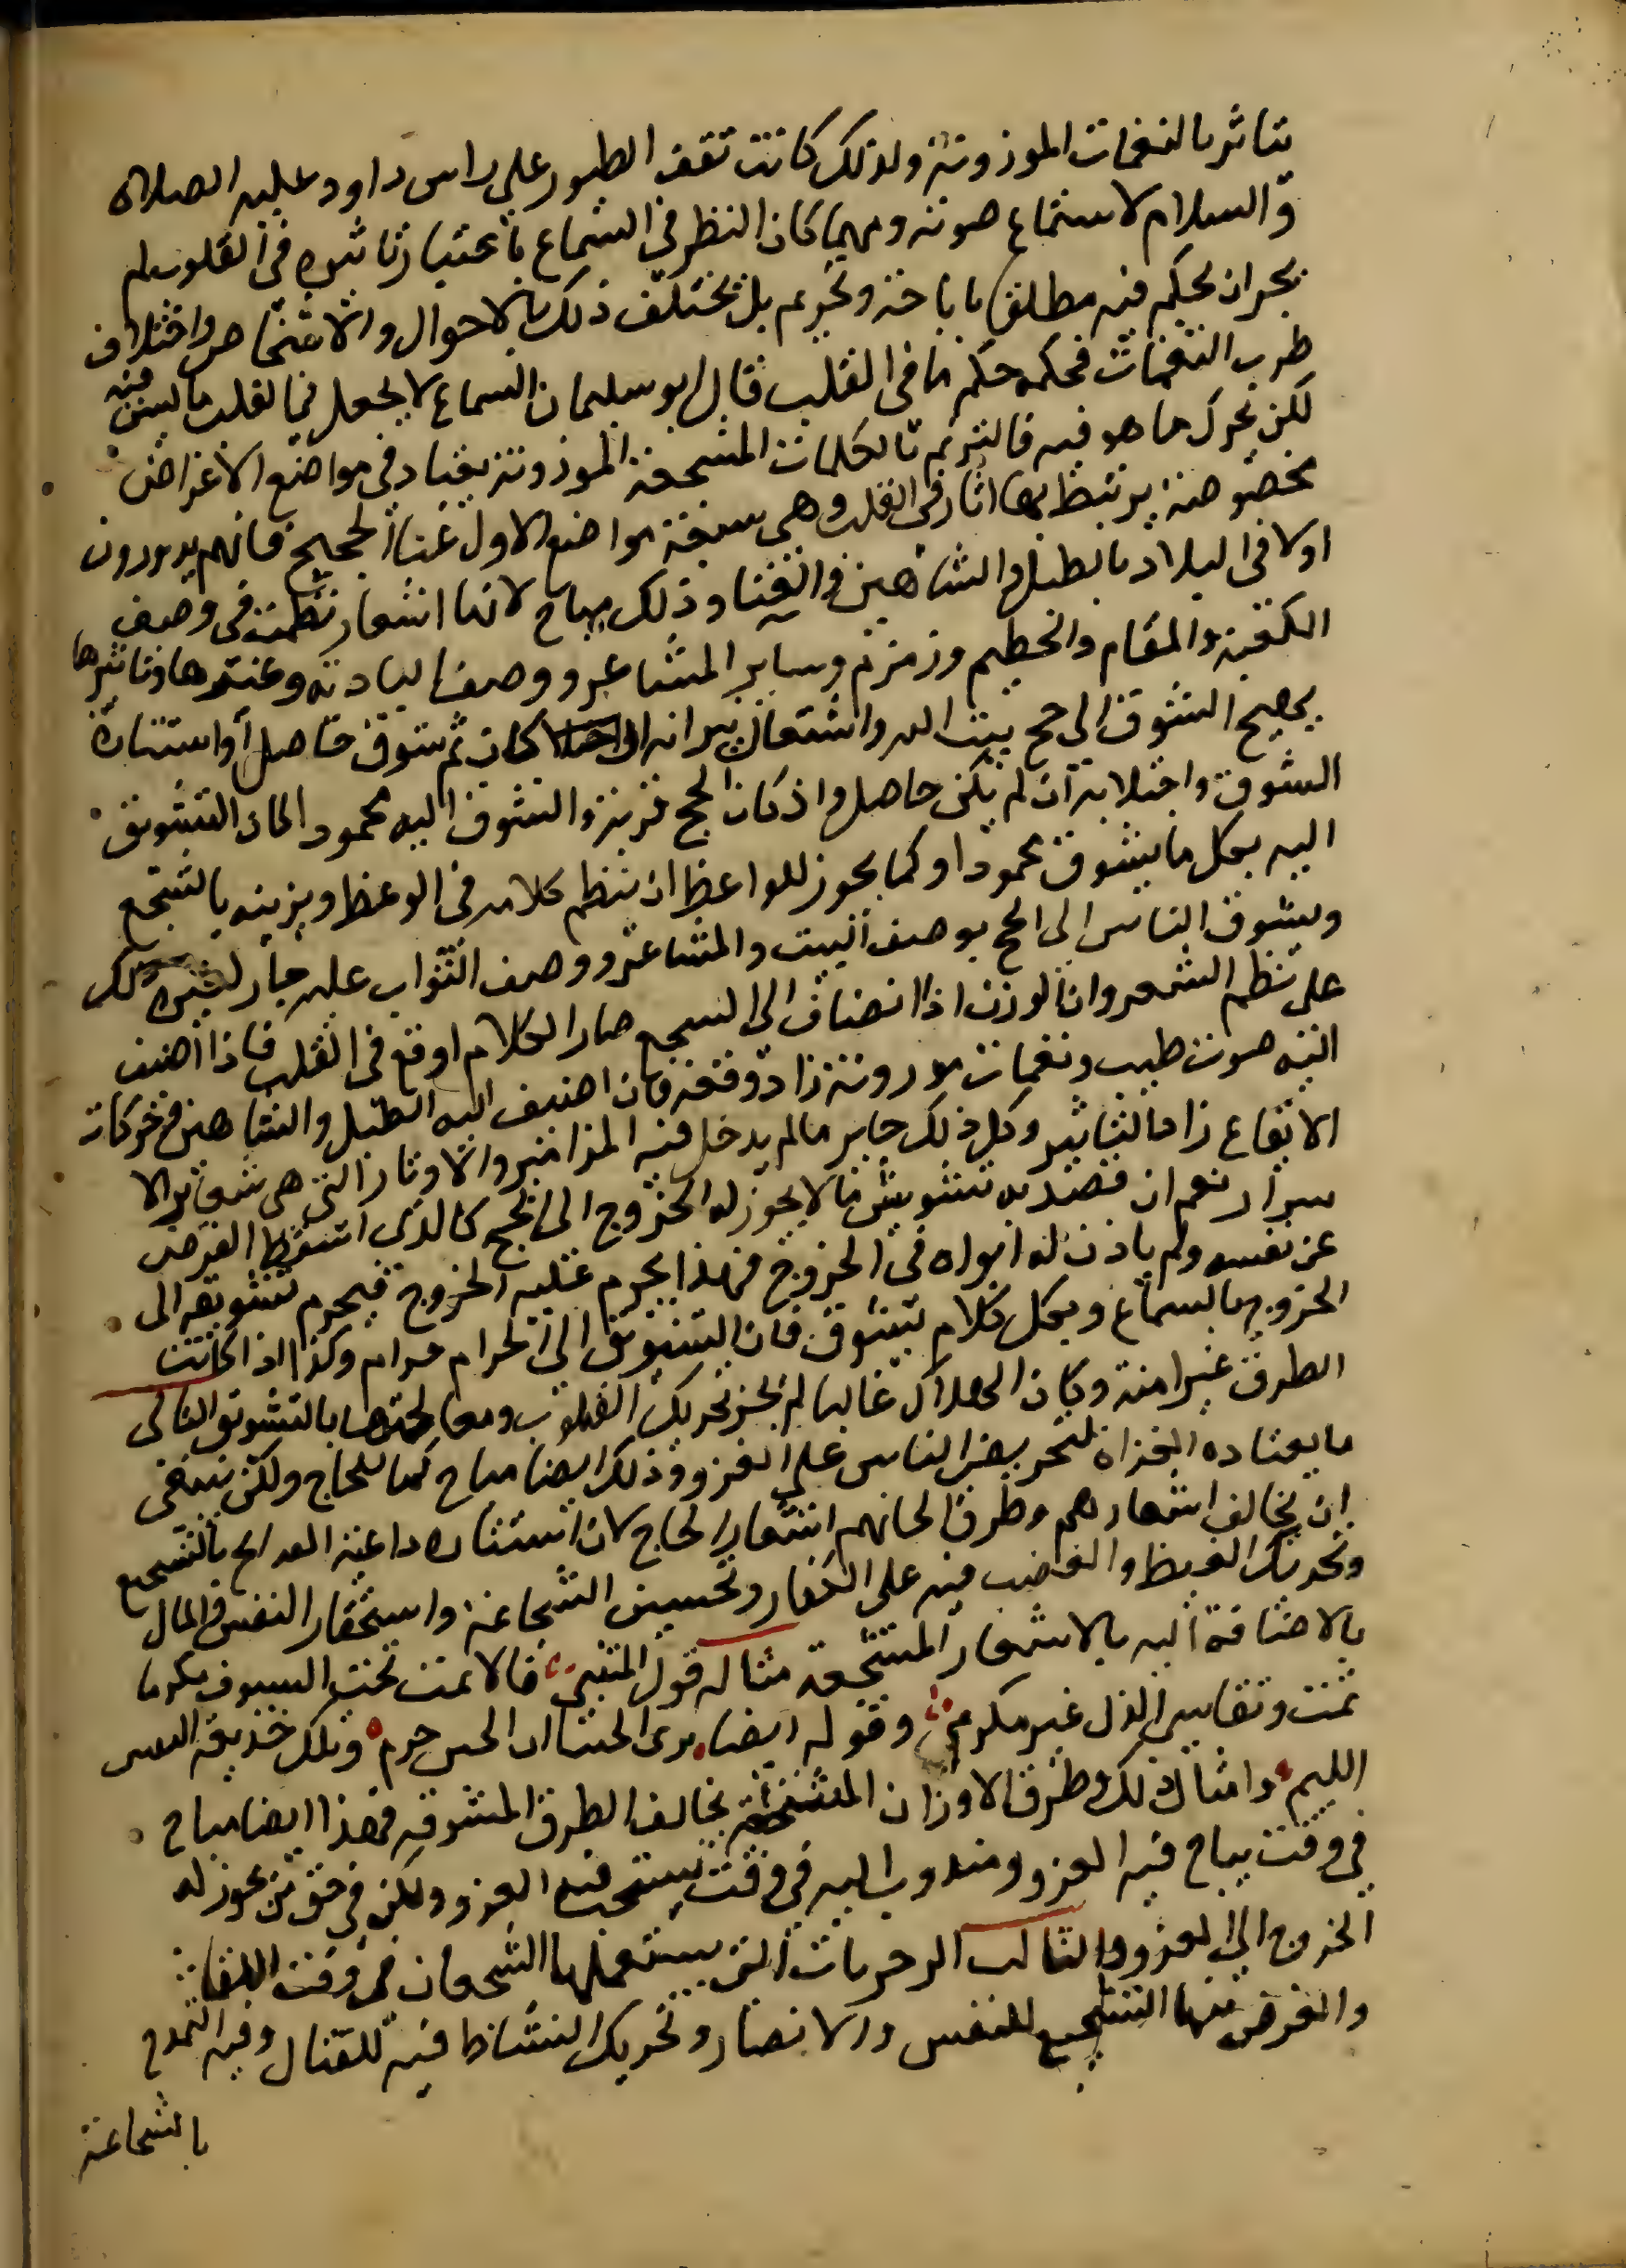 يتاثر بالنغمات الموزونة ولذلك كانت تقف الطيور على راس داود عليه الصلاة
والسلام لاستماع صوته ومهما كان النظر في السماع باعتبار تاثيره في القلوب لم
يجز ان يحكم فيه مطلقا باباحة وتحريم بل يختلف ذلك بالاحوال والاشخاص واختلاف
طرب النغمات فحكمه حكم ما في القلب قال ابو سليمان السماع لا يجعل في القلب ما ليس فيه
لكن يحرك ما هو فيه فالترنم بالكلمات المسجعة الموزونة يعتاد في مواضع الاغراض
مخصوصة يرتبط بها اثار في القلب وهي سبعة مواضع الاول غناء الحجيج فانهم يدورون
اولا في البلاد بالطبل والشاهين والغنا وذلك مباح لانها اشعار نظمت في وصف
الكعبة والمقام والحطيم وزمزم وساير المشاعر ووصف البادية وغيرها وتاثيرها
يهيج الشوق الى حج بيت الله واشتعال نيرانه ان كان ثم شوق حاصل او استثارة
الشوق واجتلابه ان لم يكن حاصلا واذ كان الحج قربة والشوق اليه محمودا كان التشويق
اليه بكل ما يشوق محمودا وكما يجوز للواعظ ان ينظم كلامه في الوعظ ويزينه بالسجع
ويشوق الناس الى الحج بوصف البيت والمشاعر ووصف الثواب عليه جاز لغيره ذلك
على نظم الشعر وان الوزن اذا انضاف الى السجع صار الكلام اوقع في القلب فاذا اضيف
اليه صوت طيب ونغمات موزونة زاد وقعه فان اضيف اليه الطبل والشاهين وحركات
الايقاع زاد التاثير وكل ذلك جايز ما لم يدخل فيه المزامير والاوتار التي هي شعاير الا
شرار نعم ان قصد به تشويق من لا يجوز له الخروج الى الحج كالذي اسقط الفرض
عن نفسه ولم ياذن له ابواه في الخروج فهذا يحرم عليه الخروج فيحرم تشويقه الى
الخروج بالسماع وبكل كلام يشوق فان التشويق الى الحرام حرام وكذا اذا كانت
الطرق غير امنة وكان الهلاك غالبا لم يجز تحريك القلوب ومعالجتها بالتشويق الثاني
ما يعتاده الغزاة لتحريض الناس على الغزو وذلك ايضا مباح كما للحاج ولكن ينبغي
ان يخالف اشعارهم وطرق الحانهم اشعار الحاج لان استثارة داعية الغزاة بالتشجيع
وتحريك الغيظ والغضب فيه على الكفار وتحسين الشجاعة واستحقار النفس والمال
بالاضافة اليه بالاشعار المشجعة مثاله قول المتنبي فالا تمت تحت السيوف مكرما
تمت وتقاسي الذل غير مكرم وقوله ايضا يرى الجبنا ان الجبن حزم وتلك خديعة النفس
اللئيم وامثال ذلك وطرق الاوزان المشجعة يخالف الطرق المشوقة فهذا ايضا مباح
في وقت يباح فيه الغزو ومندوب اليه في وقت يستحب فيه الغزو ولكن في حق من يجوز له
الخروج الى الغزو والثالث الرجزيات التي يستعملها الشجعان في وقت اللقاء
والغرض منها التشجيع للنفس والانصار وتحريك النشاط فيه للقتال وفيه التمدح
بالشجاعة